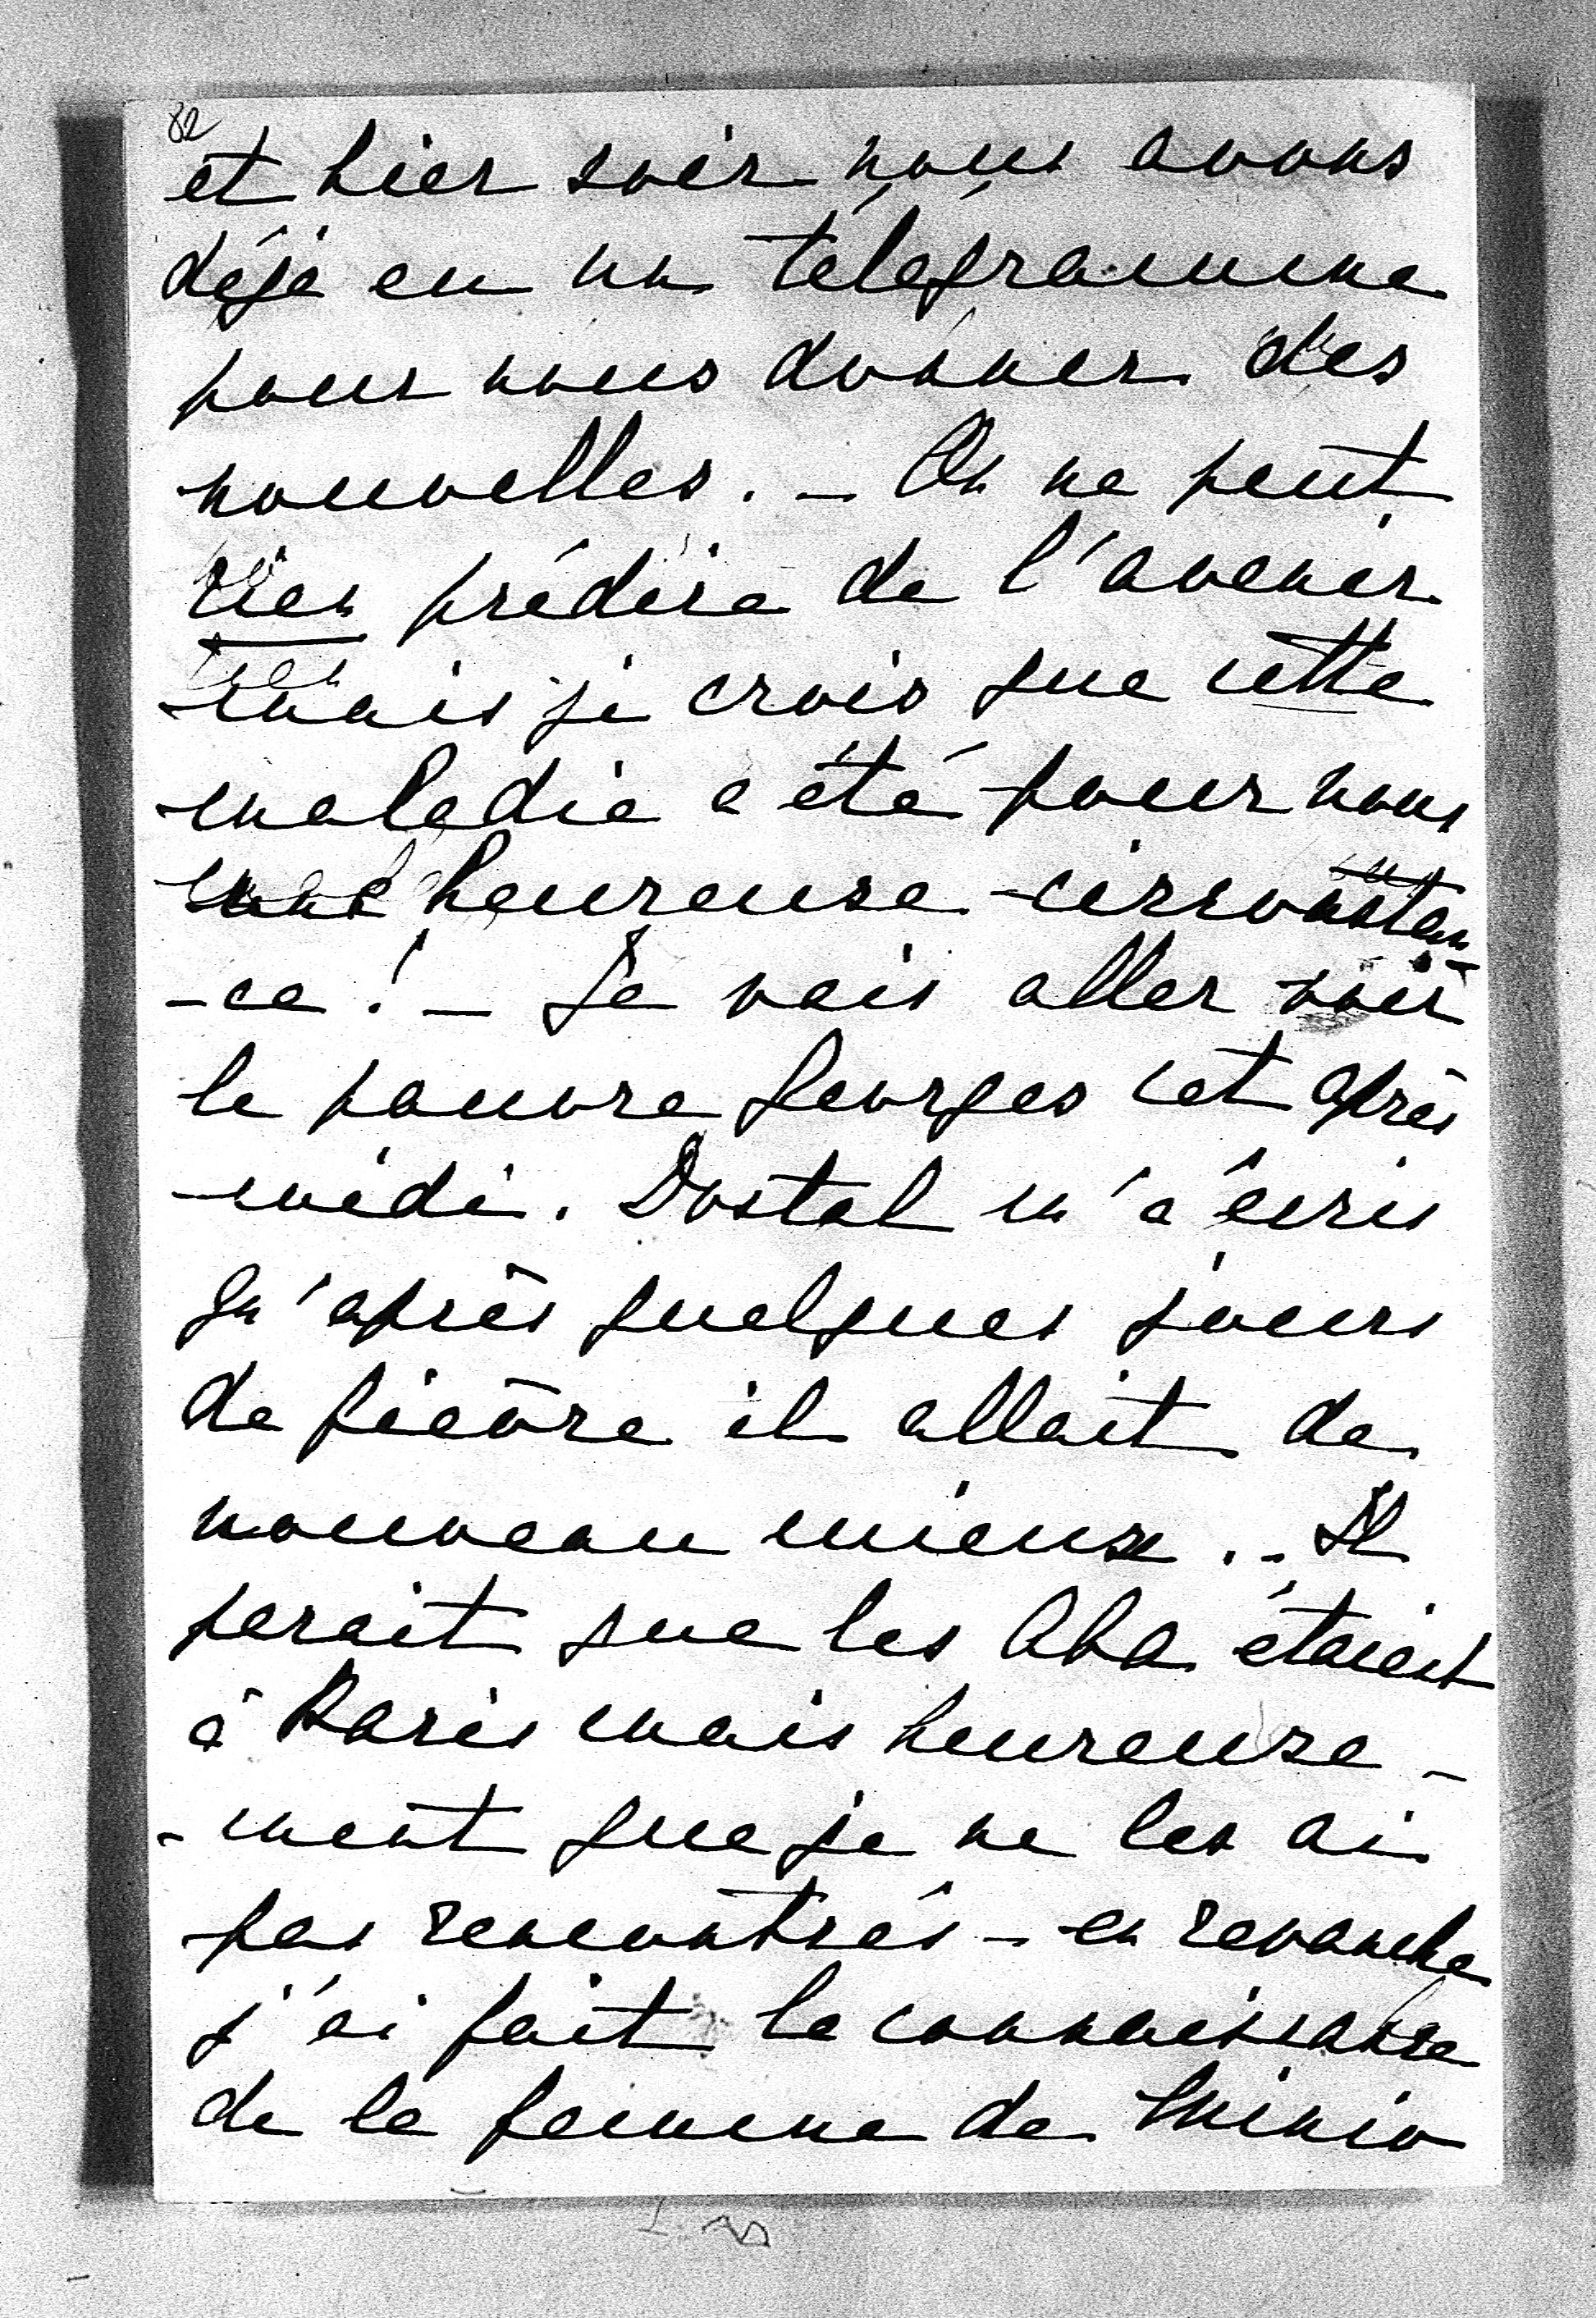 82
et hier soir nous avons
déjà eu un télégramme
pour nous donner des
nouvelles. – On ne peut
rien prédire de l'avenir
mais je crois que cette
maladie a été pour nous
une heureuse circonstan
-ce! – Je vais aller voir
le pauvre Georges cet après
-midi. Dostal m'a écris
qu'après quelques jours
de fièvre il allait de
nouveau mieux. – Il
parait que les Aba étaient
à Paris mais heureuse-
-ment que je ne les ai
pas rencontrés – en revanche
j'ai fait la connaissance
de la femme de Minio